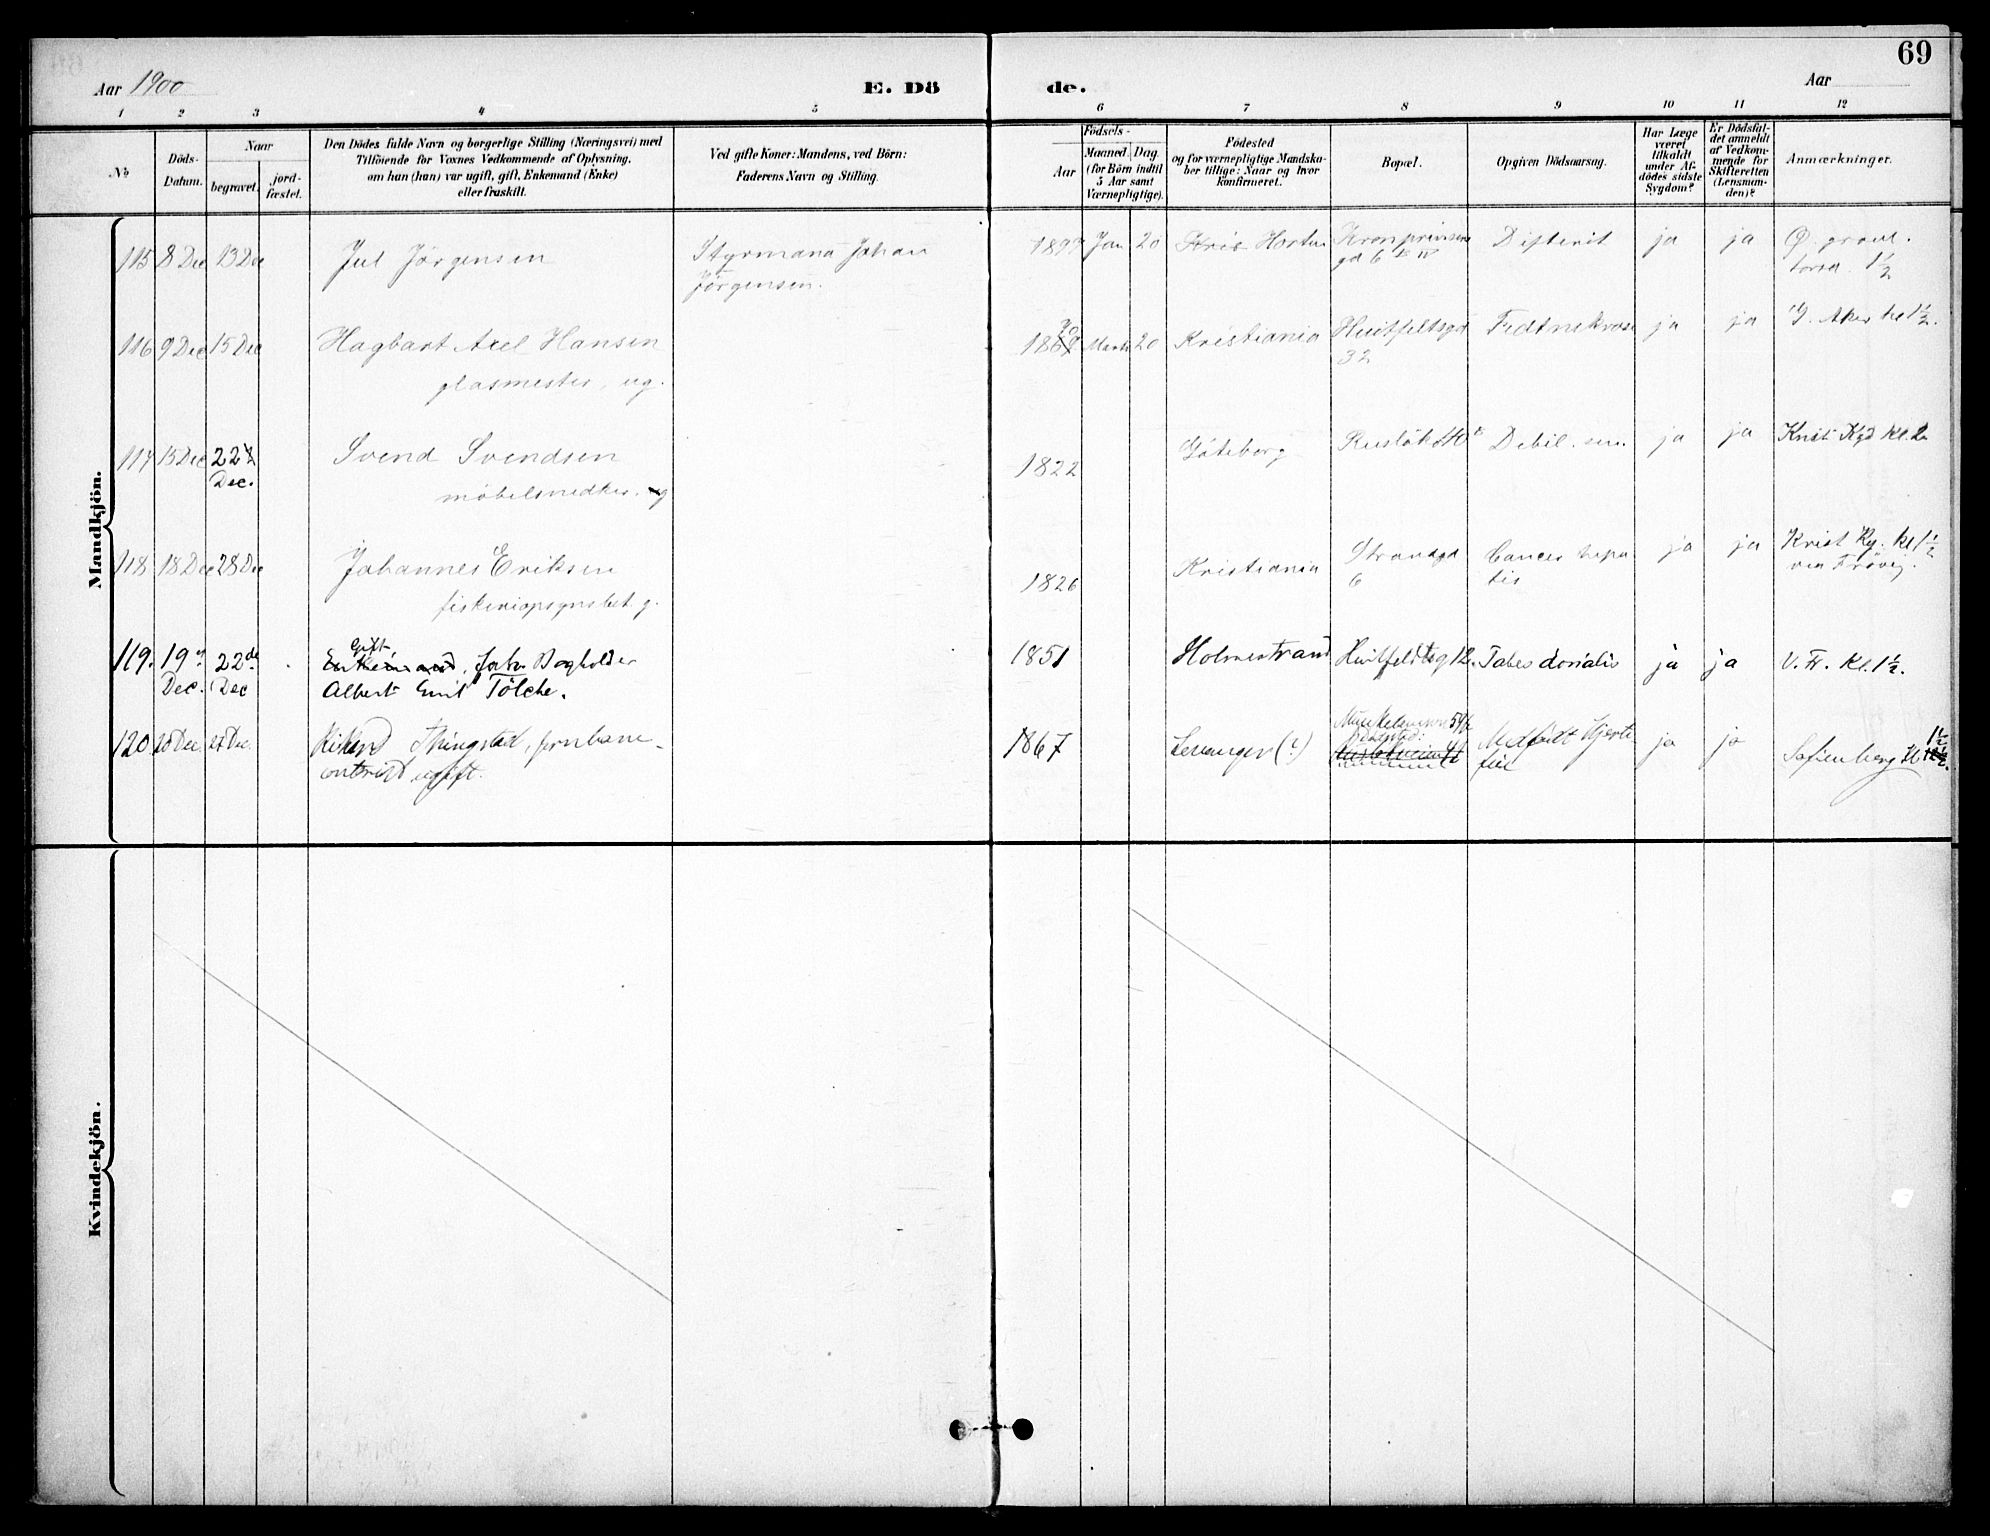 69
Aar 1900
E. Dö
de.
Aar
1 2 3 4 5 6 7 8 9 10 11 12
No
Döds-
Datum.
Naar
begravet.
jord-
fæstet.
Den Dödes fulde Navn og borgerlige Stilling (Næringsvei) med
Tilföiende for Voxnes Vedkommende af Oplysning,
om han (hun) var ugift, gift, Enkemand (Enke)
eller fraskilt.
Ved gifte Koner: Mandens, ved Börn:
Faderens Navn og Stilling.
Födsels-
Aar
Maaned. Dag.
(for Börn indtil
5 Aar samt
Værnepligtige).
Födested
og for værnepligtige Mandska-
ber tillige: Naar og hvor
konfirmeret.
Bopæl.
Opgiven Dödsaarsag.
Har Læge
været
tilkaldt
under Af-
dödes sidste
Sygdom?
Er Dödsfal-
det anmeldt
af Vedkom-
mende for
Skifteretten
(Lensman-
den)?
Anmærkninger.
Mandkjön.
115 8 Dec 13 Dec Jul Jörgensen Styrmand Johan
Jörgensen.
1897 Jan 20 Horten Kronprinsens
gd 6 IV Difterit ja ja Ø. gravl.
1½
116 9 Dec 15 Dec Hagbart Axel Hansen
glasmester, ug.
1869 70 Marts 20 Kristiania Huitfeltsgd
32 ja ja V. Aker kl 1½.
117 15 Dec 22
Dec. Svend Svendsen
möbelsnedker. g
1822 Göteborg Debil. sen. ja ja Krist Kgd kl. 2
118 18 Dec 28 Dec Johannes Eriksen
g.
1826 Kristiania Strandgd
6 Cancer hepa
tis ja ja Krist Kg. kl 1½
119. 19
Dec. 22de
Dec Gift
Enkemand, Bogholder
Albert Emil Tölche.
1851 Holmestrand Huitfeldtsg 12. Tabes dorsalis ja ja V. Fr. Kl. 1½.
120. 20 Dec. 27 Dec. Thingstad, jernbane-
ugift.
1867 Levanger (?) Medfödt Hjerte
feil ja ja Sofienberg kl 1½
Kvindekjön.